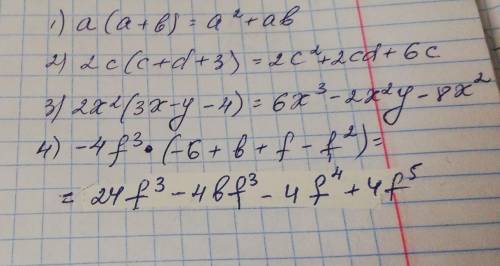 1) a(a+b) = a² + ab
2) 2c(c+d+3) = 2c² + 2cd + 6c
3) 2x²(3x-y-4) = 6x³ - 2x²y - 8x²
4) -4f³ • (-6 + b + f - f²) =
= 24f³ - 4bf³ - 4f⁴ + 4f⁵